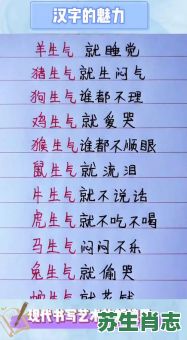 汉字的魅力
羊生气 就睡觉
猪生气 就生闷气
狗生气 谁都不理
鸡生气 就爱哭
猴生气 谁都不顺眼
鼠生气 就流泪
牛生气 就不说话
虎生气 就不吃不喝
马生气 闷闷不乐
兔生气 就偷哭
蛇生气 就花钱
现代书写艺术
苏生肖志